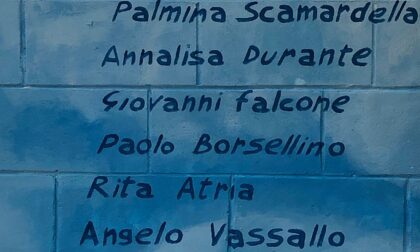 Palmina Scamardella
Annalisa Durante
Giovanni falcone
Paolo Borsellino
Rita Atria
Angelo Vassallo